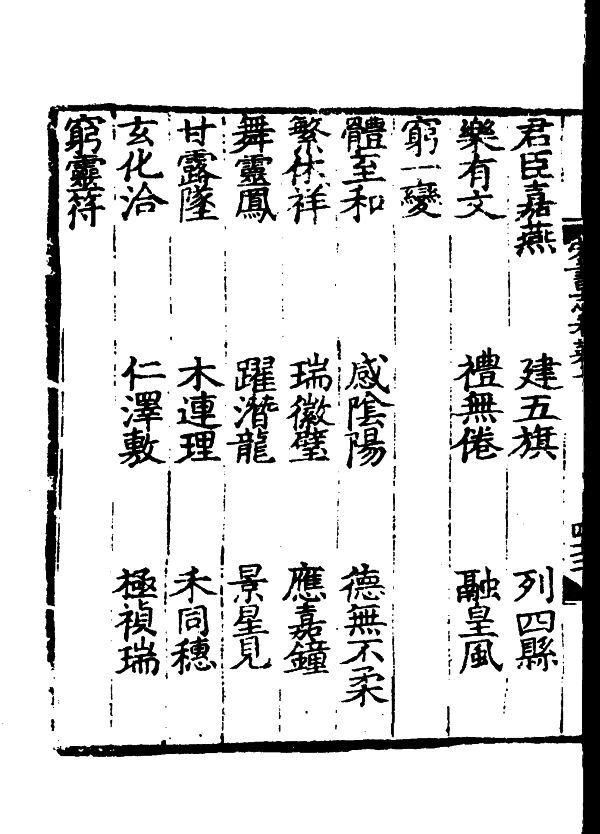 君臣嘉燕　建五旗　列四縣
樂有文　禮無倦　融皇風
窮一變
體至和　感陰陽　德無不柔
繁休祥　瑞徽璧　應嘉鐘
舞靈鳳　躍潛龍　景星見
甘露墜　木連理　禾同穗
玄化洽　仁澤敷　極禎瑞
窮靈符